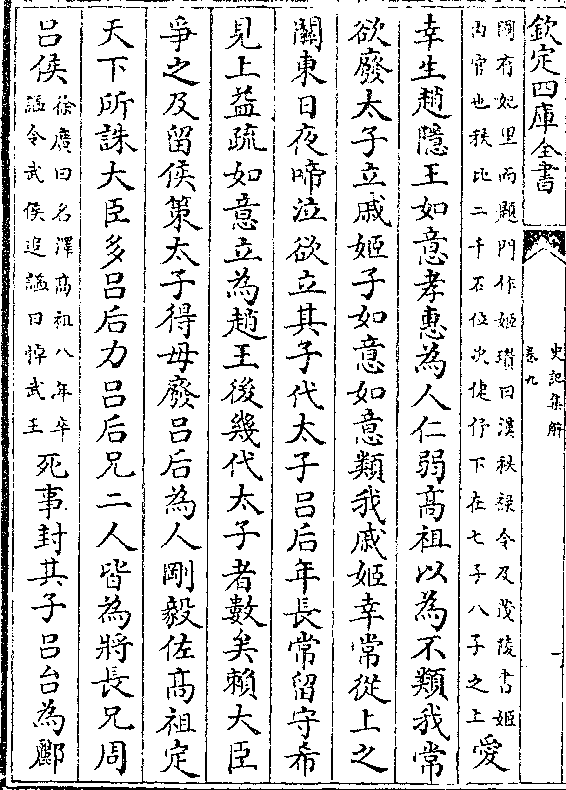 欽定四庫全書
史記集解
卷九
國有妃里而題門作姬瓚曰漢秩祿令及茂陵書姬
內官也秩比二千石位次倢伃下在七子八子之上
愛
幸生趙隱王如意孝惠為人仁弱高祖以為不類我常
欲廢太子立戚姬子如意如意類我戚姬幸常從上之
關東日夜啼泣欲立其子代太子呂后年長常留守希
見上益疏如意立為趙王後幾代太子者數矣賴大臣
爭之及留侯策太子得毋廢呂后為人剛毅佐高祖定
天下所誅大臣多呂后力呂后兄二人皆為將長兄周
呂侯
徐廣曰名澤高祖八年卒
諡令武侯追諡曰悼武王
死事封其子呂台為酈